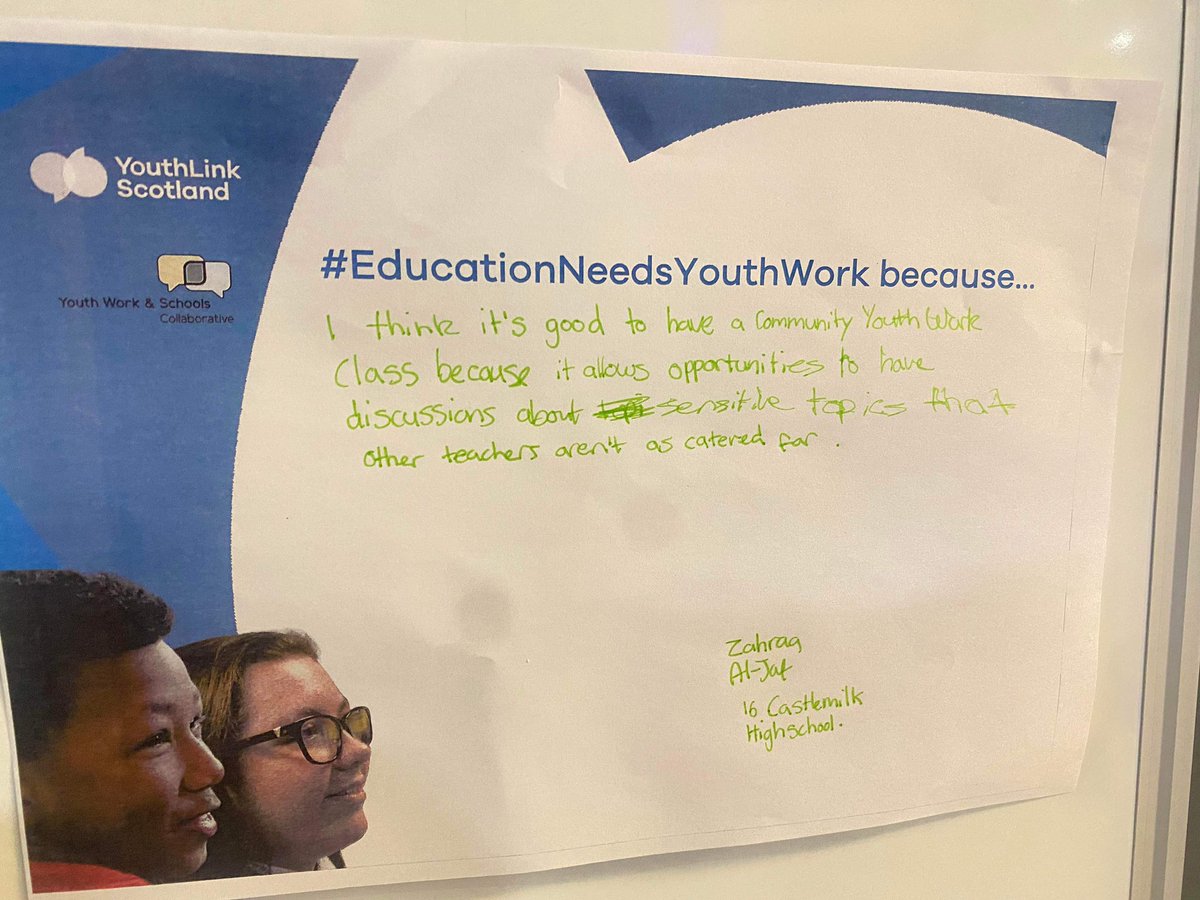 YouthLink
Scotland
Youth Work & Schools
Collaborative
#EducationNeedsYouthWork because...
I think it's good to have a Community Youth Work
Class because it allows opportunities to have
discussions about sensitive topics that
other teachers aren't as catered for.
Zahraa
Al-Jaf
16 Castlemilk
Highschool.